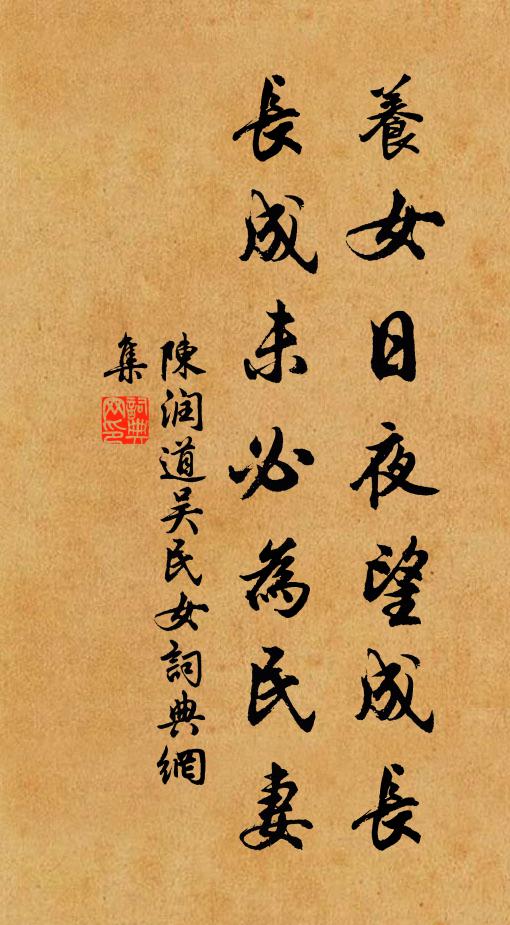 養女日夜望成長
長成未必為民妻
陳润道吴民女詞典網
集
詞典網印